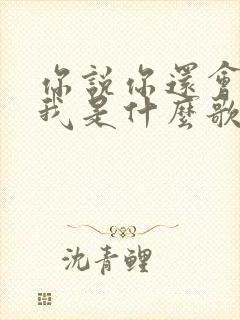 你說你還會
我是什麼歌
沈青鲤